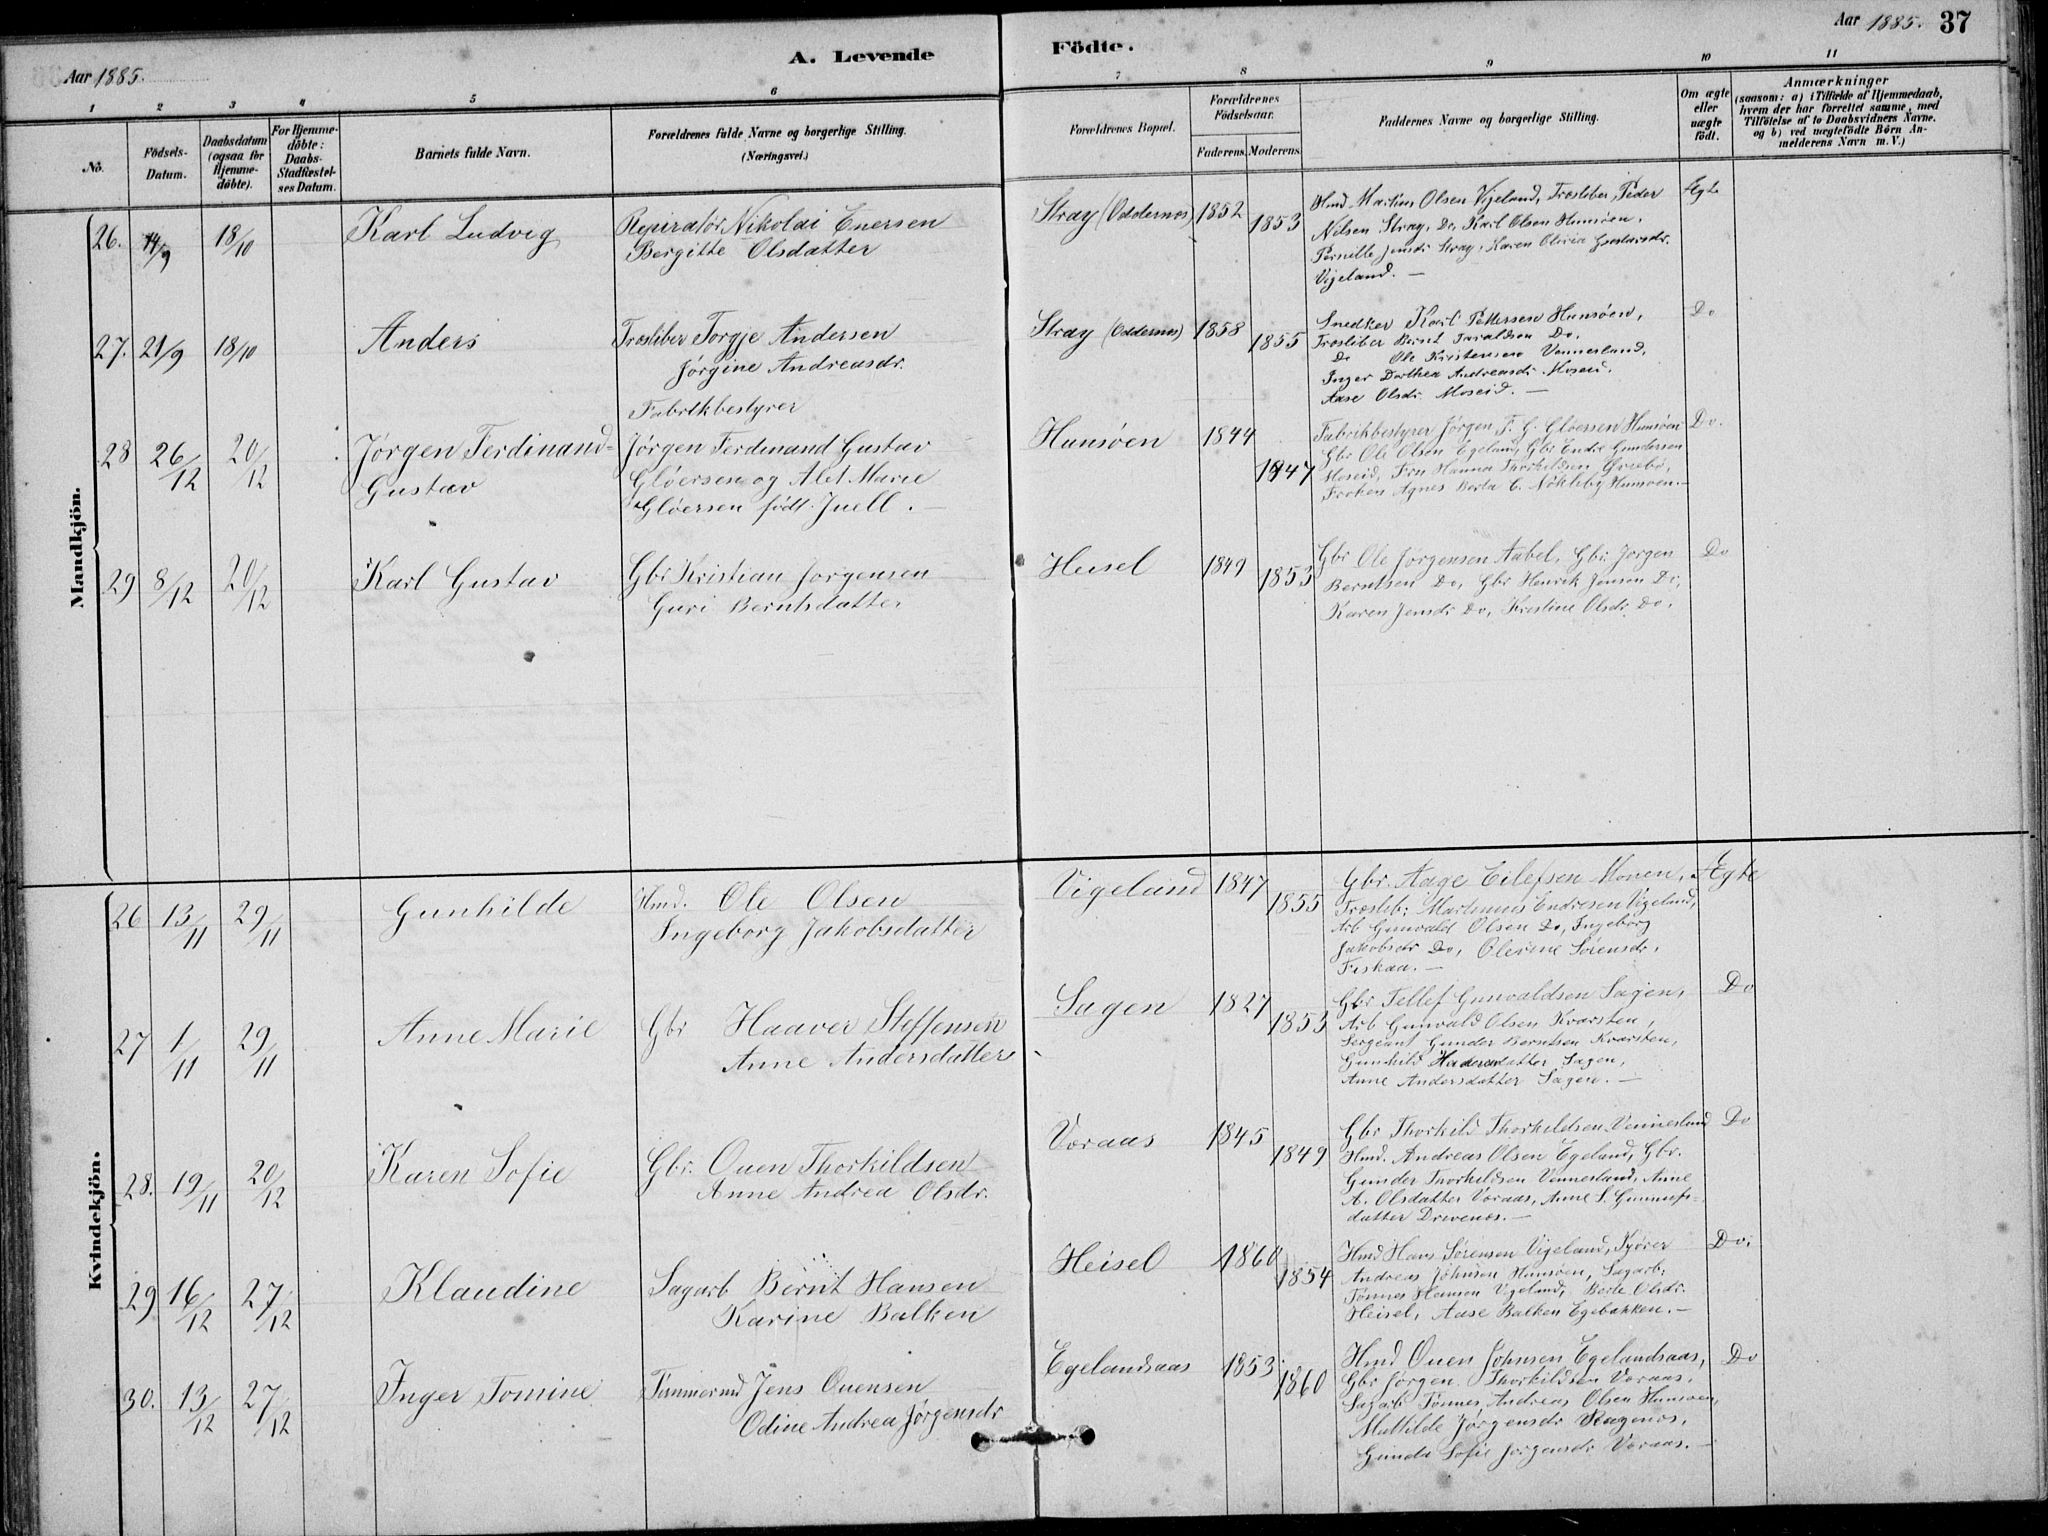 Aar 1885.
A. Levende
Födte.
Aar 1885. 37
1 2 3 4 5 6 7 8 9 10 11
No.
Födsels-
Datum.
Daabsdatum
(ogsaa for
Hjemme-
döbte).
For Hjemme-
döbte:
Daabs-
Stadfæstel-
ses Datum.
Barnets fulde Navn.
Forældrenes fulde Navne og borgerlige Stilling.
(Næringsvei.)
Forældrenes Bopæl.
Forældrenes
Födselsaar.
Faderens. Moderens.
Faddernes Navne og borgerlige Stilling.
Om ægte
eller
uægte
födt.
Anmærkninger
(saasom: a) i Tilfælde af Hjemmedaab,
hvem der har forrettet samme, med
Tilföielse af to Daabsvidners Navne,
og b) ved uægtefödte Börn An-
melderens Navn m. V.)
Mandkjön.
26. 14/9 18/10 Karl Ludvig
Reperatör Nikolai Enersen
Bergitte Olsdatter
Stray (Oddernes) 1852 1853
Hmd Martin Olsen Vigeland, Træsliber Peder
Nilsen Stray, Do Karl Olsen Hunsøen,
Pernille Jensdr Stray, Karen Olivia Gustavsdr.
Vigeland. —
Ægte
27. 21/9 18/10 Anders
Træsliber Torgje Andersen
Jørgine Andreasdr.
Stray (Oddernes) 1858 1855
Snedker Karl Pettersen Hunsøen,
Træsliber Bernt Taraldsen Do,
Do Ole Kristensen Vennesland,
Inger Dorthea Andreasdr Moseid,
Aase Olsdr. Moseid. —
Do
28 26/12 20/12 Jørgen Ferdinand
Gustav
Fabrikbestyrer
Jørgen Ferdinand Gustav
Gløersen og Alet Marie
Gløersen født Juell. —
Hunsøen 1844 1847
Fabrikbestyrer Jørgen F. G. Gløersen Hunsøen
Gbr Ole Olsen Egeland, Gbr Endre Gundersen
Moseid, Fru Hanna Thorkildsen Øvrebø,
Frøken Agnes Berta C. Nökleby Hunsøen. —
Do.
29 8/12 20/12 Karl Gustav
Gbr Kristian Jørgensen
Guri Berntsdatter
Heisel 1849 1853
Gbr Ole Jørgensen Aabel, Gbr. Jørgen
Berntsen Do, Gbr Henrik Jensen Do,
Karen Jensdr Do, Kristine Olsdr Do.
Do
Kvindekjön.
26 13/11 29/11 Gunhilde
Hmd. Ole Olsen
Ingeborg Jakobsdatter
Vigeland 1847 1855
Gbr. Aage Eilefsen Moen,
Træslib: Martinius Endresen Vigeland,
Arb Gunvald Olsen Do, Ingeborg
Jakobsdr Do, Olevine Sørensdr.
Fiskaa. —
Ægte
27 1/11 29/11 Anne Marie
Gbr Haaver Steffensen
Anne Andersdatter
Sagen 1827 1853
Gbr Tellef Gunvaldsen Sagen,
Arb Gunvald Olsen Kvarsten,
Sergeant Gunder Berntsen Kvarsten,
Gunhild Haaversdatter Sagen,
Anne Andersdatter Sagen. —
Do
28. 19/11 20/12 Karen Sofie
Gbr. Ouen Thorkildsen
Anne Andrea Olsdr.
Voraas 1845 1849
Gbr Thorkild Thorkildsen Vennesland
Hmd. Andreas Olsen Egeland, Gbr.
Gunder Thorkildsen Vennesland, Anne
A. Olsdatter Voraas, Anne S. Gunnufs-
datter Drivenes. —
Do
29 16/12 27/12 Klaudine
Sagarb Bernt Hansen
Karine Balken
Heisel 1860 1854
Hmd Hans Sørensen Vigeland, Kjører
Andreas Johnsen Hunsøen, Sagarb:
Tønnes Hansen Vigeland, Berte Olsdr.
Heisel, Aase Balken Egebakken. —
Do.
30. 13/12 27/12 Inger Tomine
Tømmermd Jens Ouensen
Odine Andrea Jørgensdr
Egelandsaas 1853 1860
Hmd Ouen Johnsen Egelandsaas,
Gbr Jørgen Thorkildsen Voraas,
Sagarb Tønnes, Andreas Olsen Hunsøen,
Mathilde Jørgensdr Ragenes,
Gunda Sofie Jørgensdr Voraas. —
Do